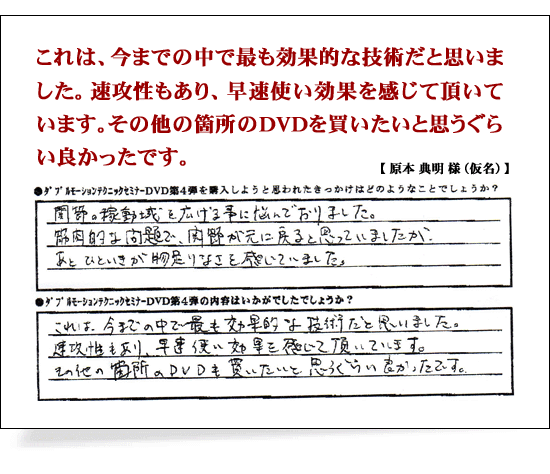 これは、今までの中で最も効果的な技術だと思いま
した。速攻性もあり、早速使い効果を感じて頂いて
います。その他の箇所のDVDを買いたいと思うぐら
い良かったです。
【 原本 典明 様（仮名）】
●ダブルモーションテクニックセミナーDVD第4弾を購入しようと思われたきっかけはどのようなことでしょうか？
関節の稼動域を広げる事に悩んでおりました。
筋肉的な問題で、関節が元に戻ると思っていましたが、
あとひといきが物足りなさを感じていました。
●ダブルモーションテクニックセミナーDVD第4弾の内容はいかがでしたでしょうか？
これは、今までの中で最も効果的な技術だと思いました。
速攻性もあり、早速使い効果を感じて頂いています。
その他の箇所のDVDも買いたいと思うぐらい良かったです。